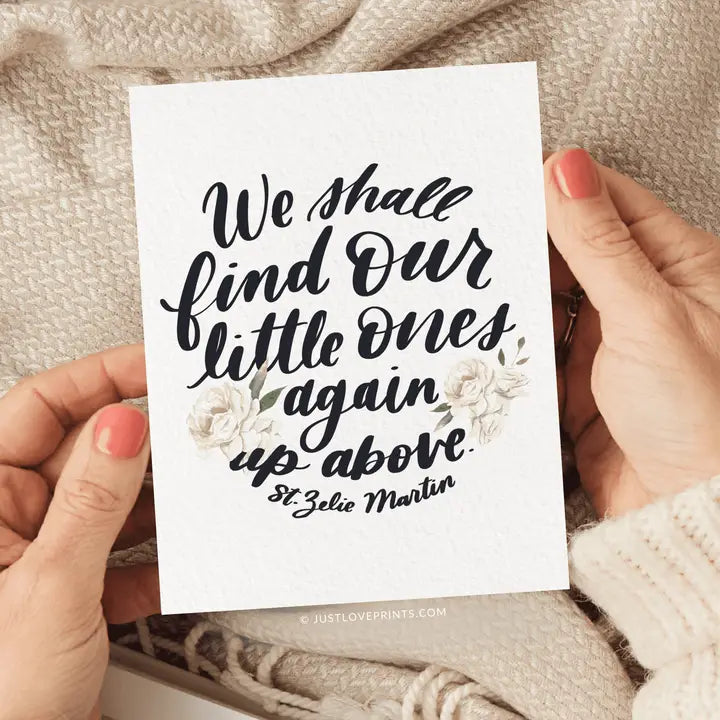 We shall
find our
little ones
again
up above.
St. Zelie Martin
© JUSTLOVEPRINTS.COM